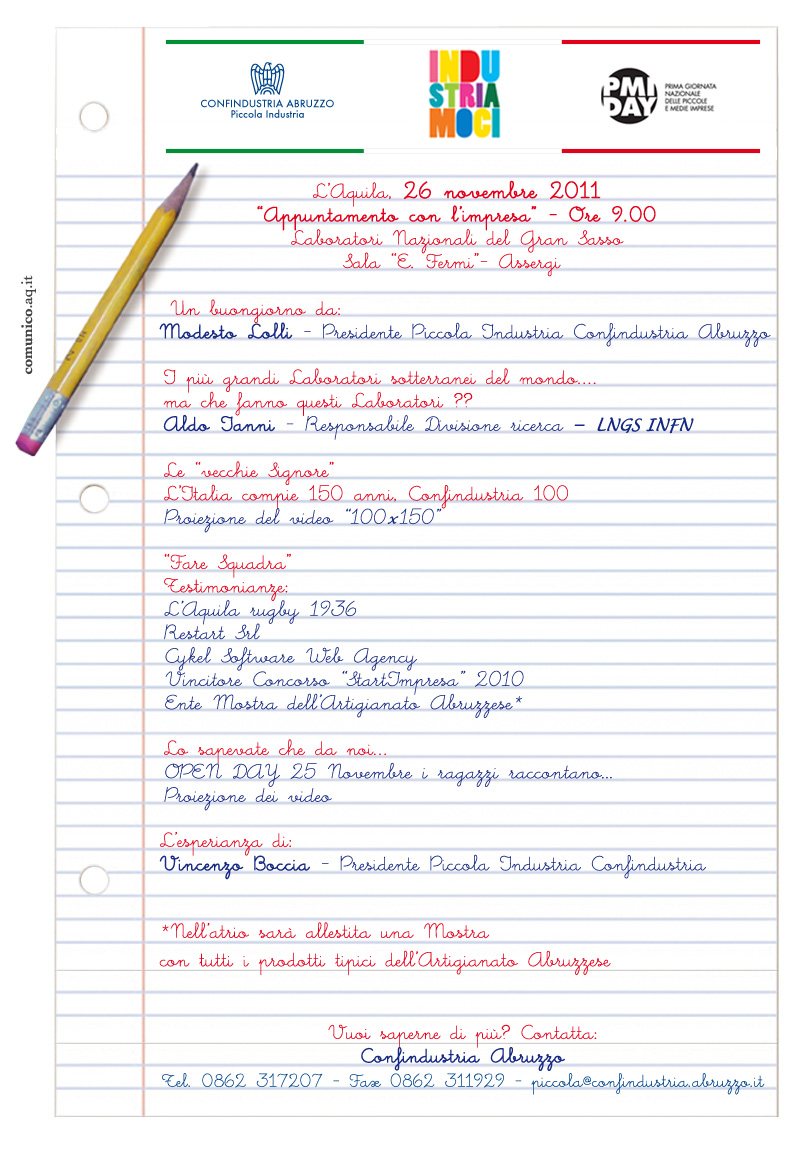 CONFINDUSTRIA ABRUZZO
Piccola Industria
INDU
STRIA
MOCI
PMI
DAY
PRIMA GIORNATA
NAZIONALE
DELLE PICCOLE
E MEDIE IMPRESE
L'Aquila, 26 novembre 2011
"Appuntamento con l'impresa" - Ore 9.00
Laboratori Nazionali del Gran Sasso
Sala "E. Fermi"- Assergi
comunico.aq.it
Un buongiorno da:
Modesto Lolli - Presidente Piccola Industria Confindustria Abruzzo
I più grandi Laboratori sotterranei del mondo....
ma che fanno questi Laboratori ??
Aldo Ianni - Responsabile Divisione ricerca – LNGS INFN
Le "vecchie Signore"
L'Italia compie 150 anni, Confindustria 100
Proiezione del video "100x150"
"Fare Squadra"
Testimonianze:
L'Aquila rugby 1936
Restart Srl
Cykel Software Web Agency
Vincitore Concorso "StartImpresa" 2010
Ente Mostra dell'Artigianato Abruzzese*
Lo sapevate che da noi...
OPEN DAY 25 Novembre i ragazzi raccontano...
Proiezione dei video
L'esperianza di:
Vincenzo Boccia - Presidente Piccola Industria Confindustria
*Nell'atrio sarà allestita una Mostra
con tutti i prodotti tipici dell'Artigianato Abruzzese
Vuoi saperne di più? Contatta:
Confindustria Abruzzo
Tel. 0862 317207 - Fax 0862 311929 - piccola@confindustria.abruzzo.it